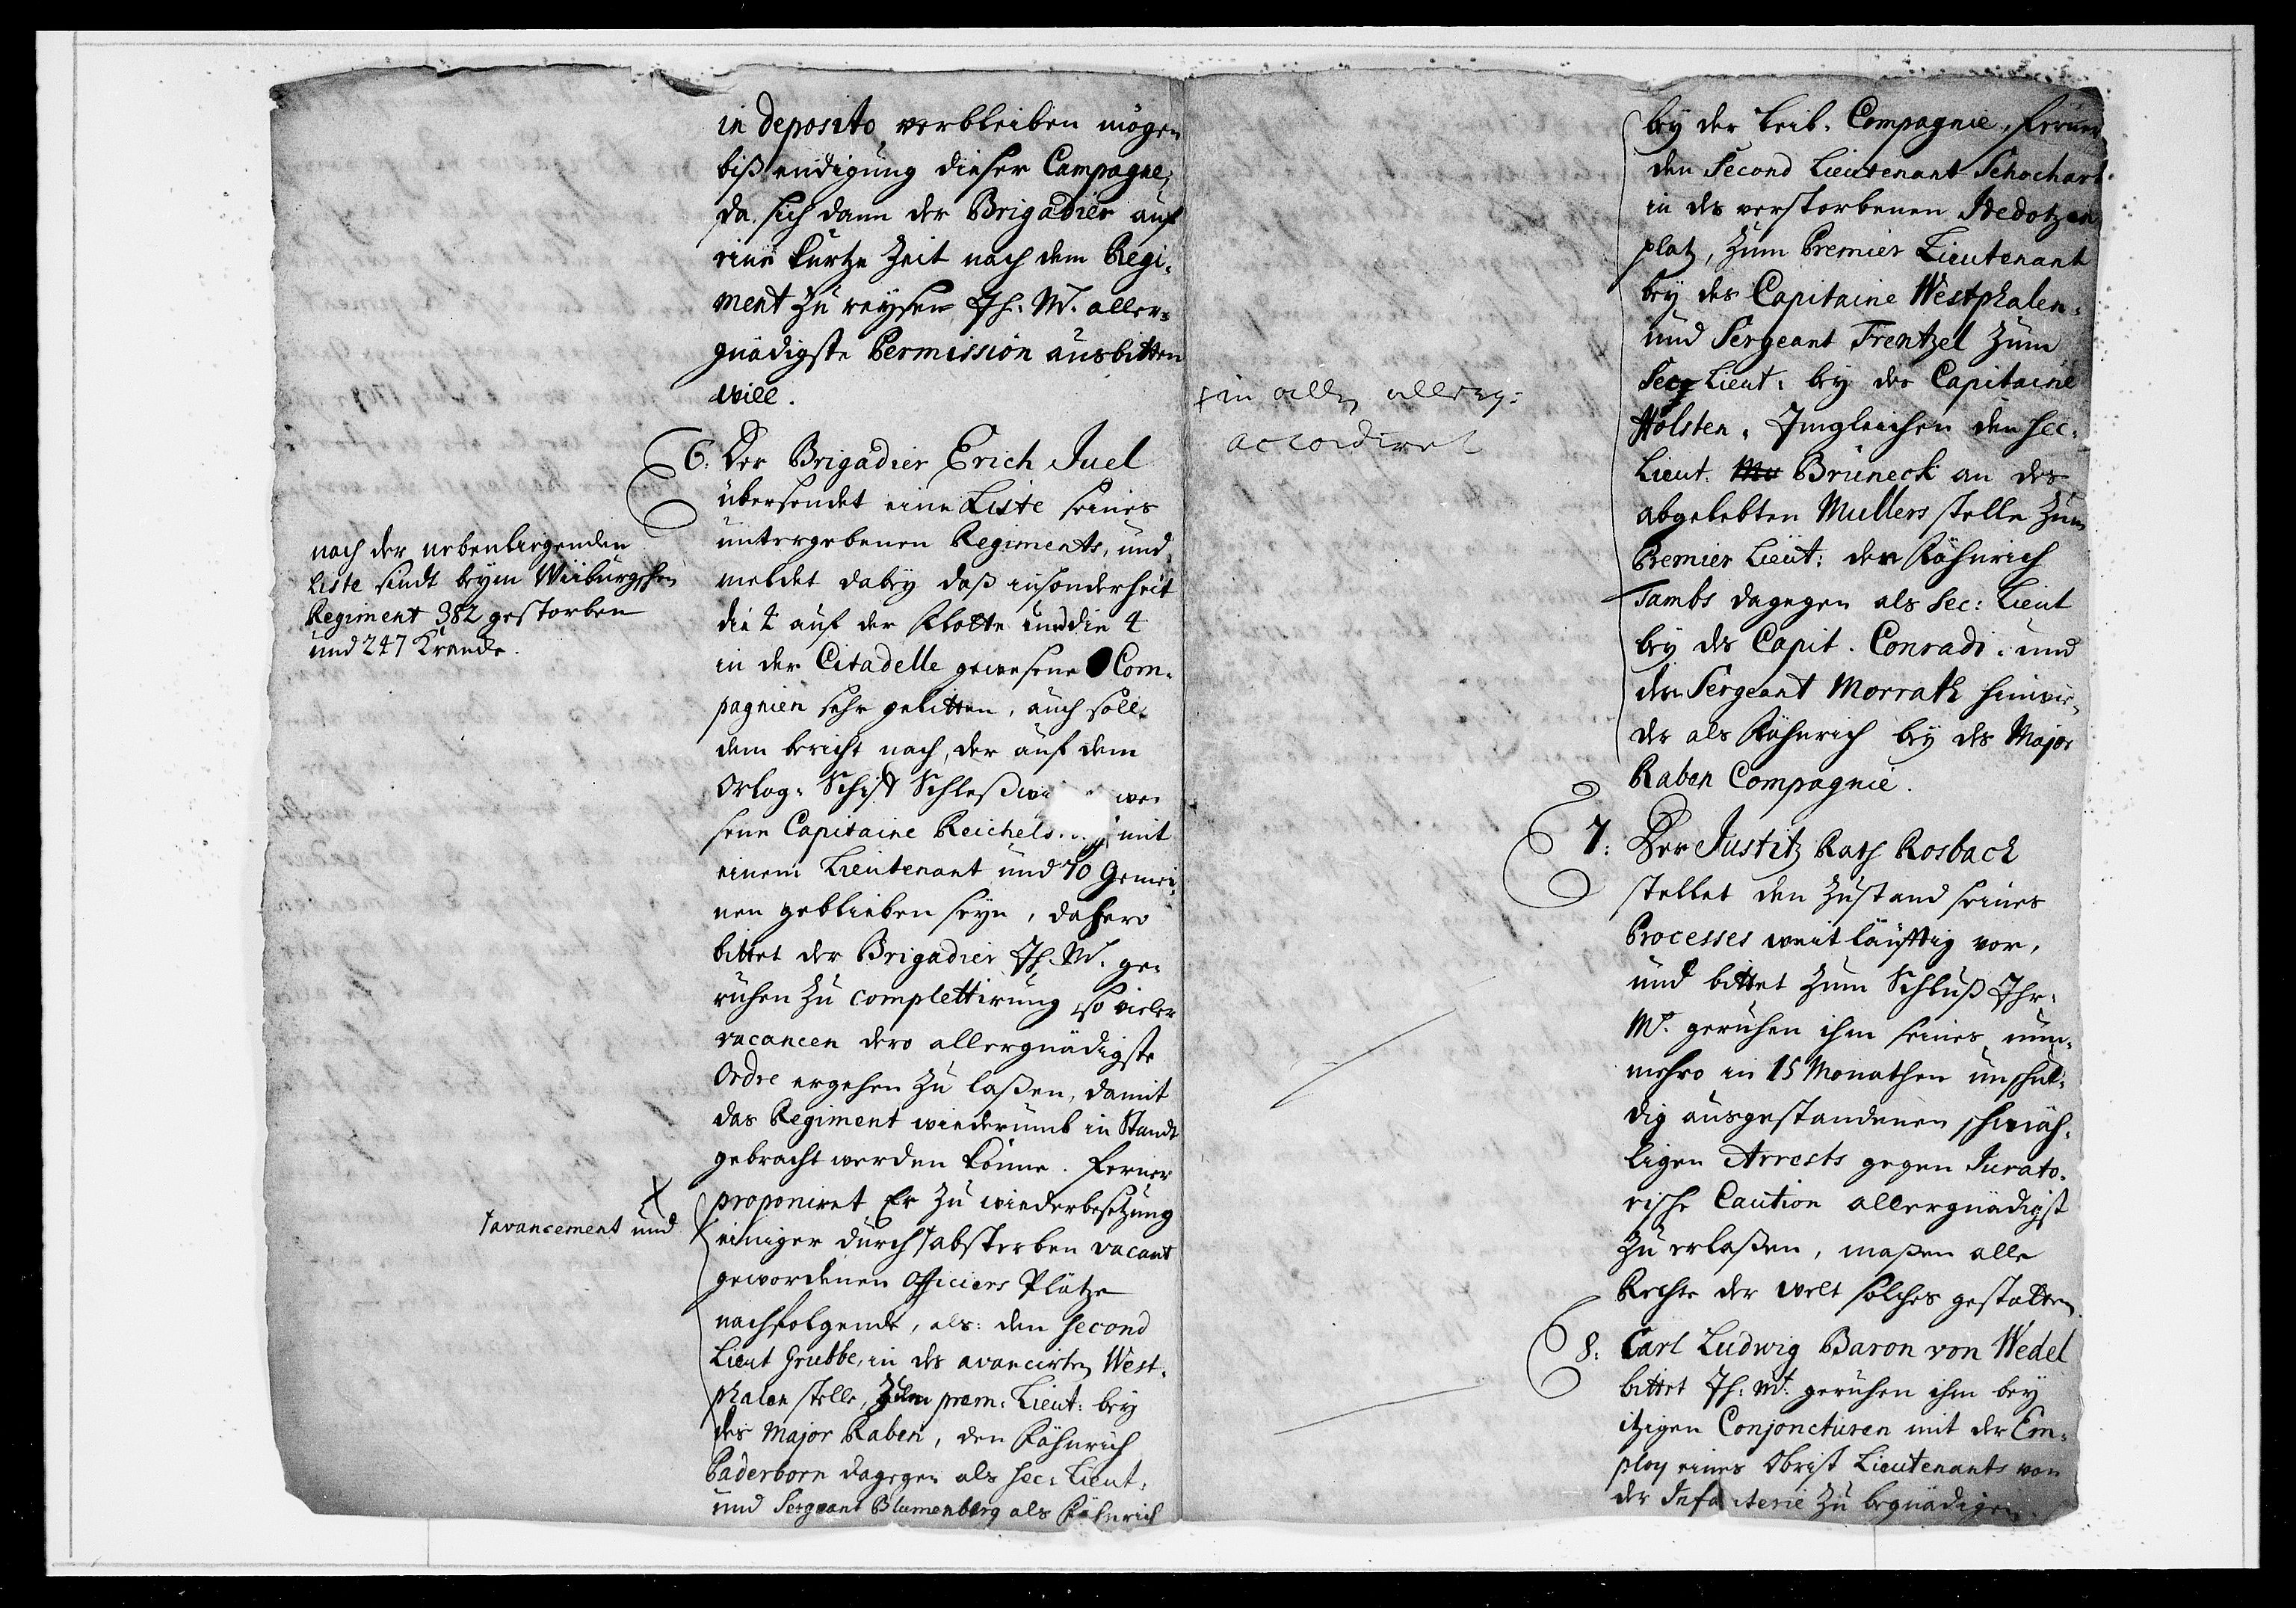 in deposito verbleiben mögen
biß endigung dieser Campagne,
da sich dann der Brigadier auf
eine kurtze Zeit nach dem Regi-
ment zu reysen Ih: Mt. aller-
gnädigste Permission ausbitten
will.
6: Der Brigadier Erich Juel
übersendet eine Liste seines
untergebenen Regiments, und
meldet dabey daß insonderheit
die 4 auf der Flotte und die 4
in der Citadelle gewesene Com-
pagnien sehr gelitten, auch soll
dem bericht nach, der auf dem
Orlog-Schiff Schleßwi we-
sene Capitaine Reichels mit
einem Lieutenant und 70 Gemei-
nen geblieben seyn, dahero
bittet der Brigadier Ih. Mt. ge-
ruhen zu complettirung so vieler
vacancen dero allergnädigste
Ordre ergehen zu laßen, damit
das Regiment wiederumb in Standt
gebracht werden könne. ferner
proponiret Er zu wiederbesetzung
einiger durch † absterben vacant
gewordenen Officiers Plätze
nachfolgende, als: den Second
Lieut Grubbe, in des avancirten West-
phalen stelle, zum prem: Lieut: bey
des Major Raben, den Fähnrich
Paderborn dagegen als Sec: Lieut:
und Sergeant Blumenberg als Fähnrich
nach der nebenliegenden
Liste sindt beym Wiiburgschen
Regiment 382 gestorben
und 247 Krancke.
† avancement und
† in allen allergn:
accordiret
bey der Leib-Compagnie, ferner
den Second Lieutenant Schochart
in des verstorbenen Stedotzen
platz, zum Premier Lieutenant
bey des Capitaine Westphalen-
und Sergeant Frentzel zum
Sec Lieut: bey des Capitaine
Holsten. Imgleichen den Sec:
Lieut. Mu Bruneck an des
abgelebten Mullers stelle zum
Premier Lieut: den Fähnrich
Tambs dagegen als Sec: Lieut
bey des Capit. Conradi: und
den Sergeant Morrath hinwie-
der als Fähnrich bey des Major
Raben Compagnie.
7: Der Justitz Rath Rosbach
stellet den Zustand seines
Processes weitläufftig vor,
und bittet zum Schluß Ihr:
Mt. geruhen ihm seines nun-
mehro in 15 Monathen unschul-
dig ausgestandenen schmäh-
ligen Arrests gegen Jurato-
rische Caution allergnädigst
zu erlaßen, maßen alle
Rechte der welt solches gestatten
8: Carl Ludwig Baron von Wedel
bittet Ih: Mt: geruhen ihm bey
itzigen Conjoncturen mit der Em-
ploy eines Obrist Lieutenants von
der Infanterie zu begnädigen.